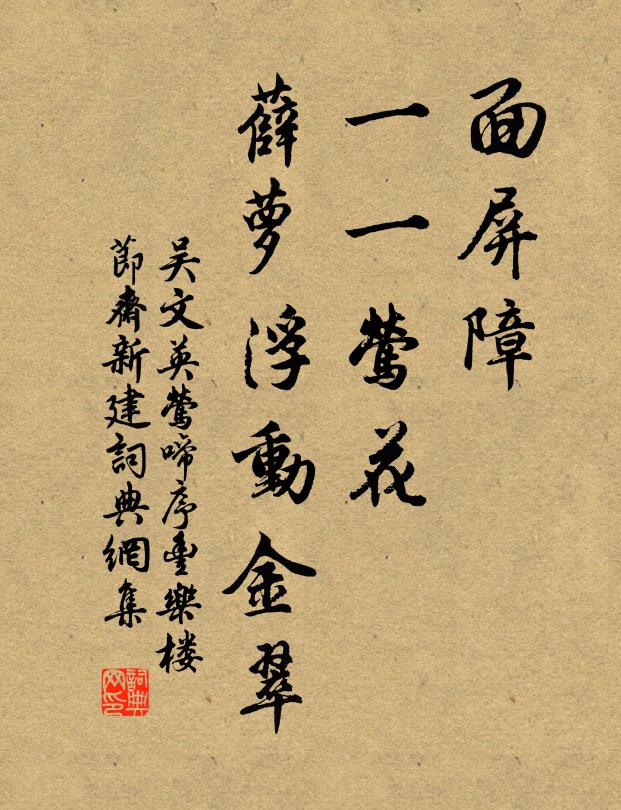 面屏障
一一鶯花
薜萝浮動金翠
吴文英鶯啼序豐樂楼
節齋新建詞典網集
詞典網印